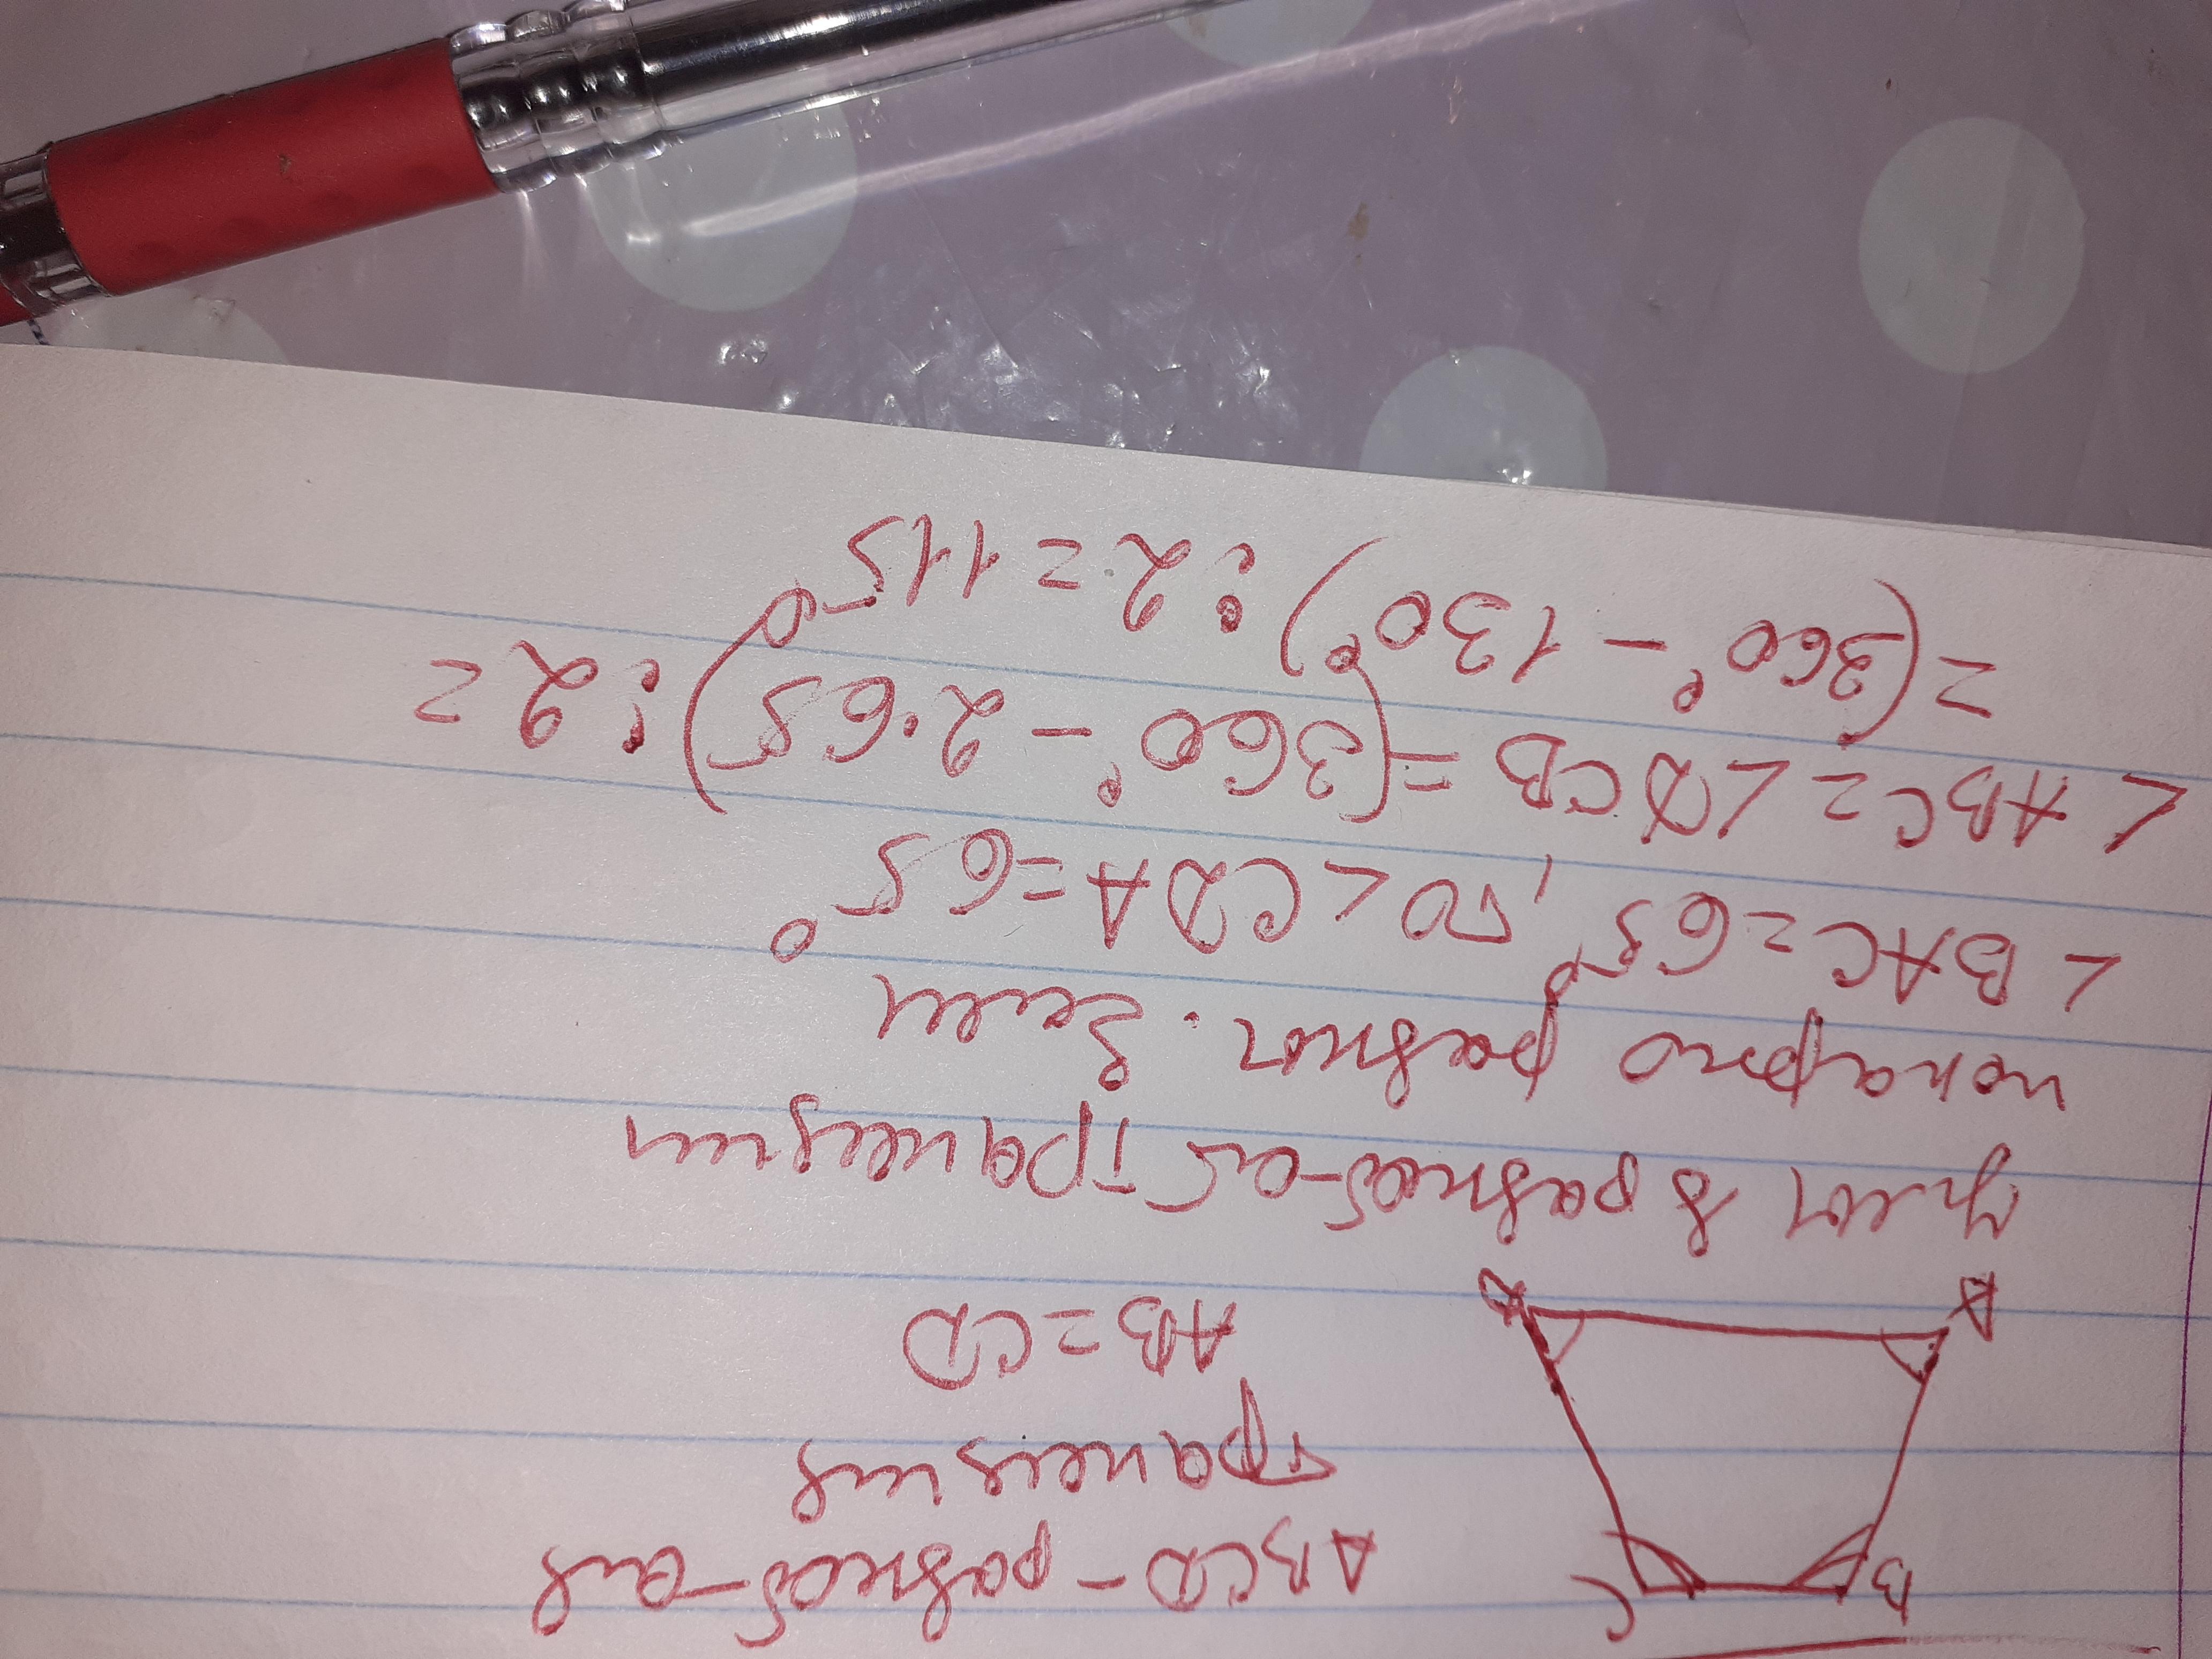 B
C
A
D
ABCD - равноб-ая
трапеция
AB = CD
Углы в равноб-ой трапеции
попарно равны. Если
∠BAC = 65°, то ∠CDA = 65°
∠ABC = ∠DCB = (360° - 2·65°) : 2 =
= (360° - 130°) : 2 = 115°